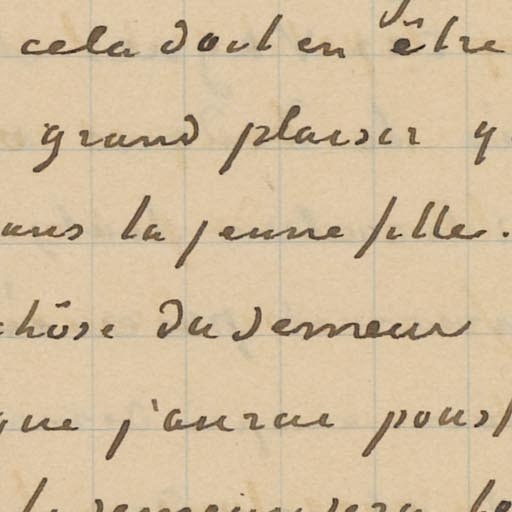 cela doit en être
grand plaisir q
ans la jeune fille.
chôse du semeur
que j'aurai pouss